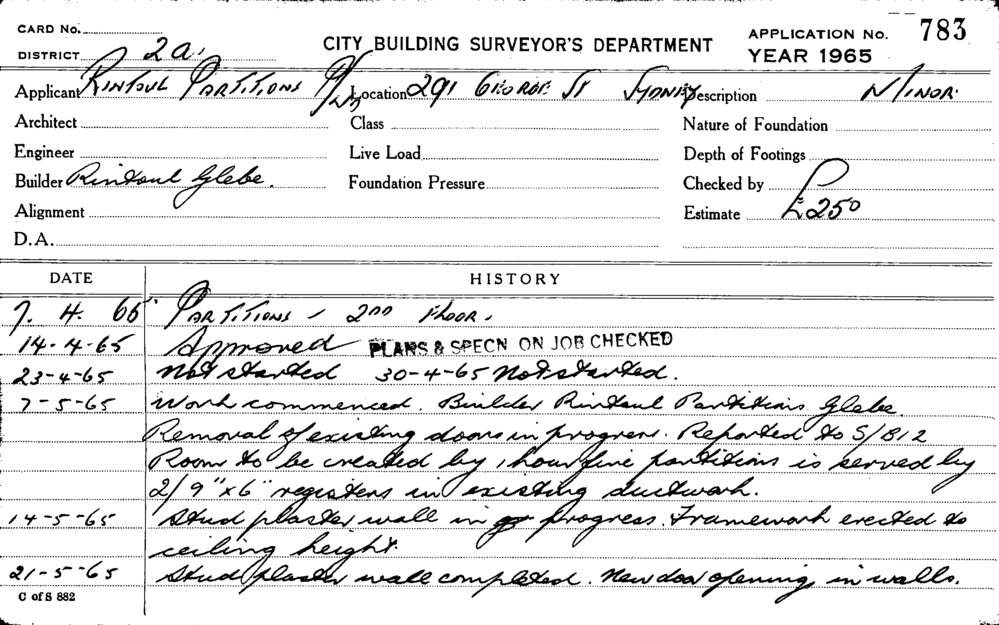 CARD No.
DISTRICT 2a.
CITY BUILDING SURVEYOR'S DEPARTMENT
APPLICATION No. 783
YEAR 1965
Applicant Rintoul Partitions P/L
Location 291 George St Sydney
Description Minor.
Architect
Class
Nature of Foundation
Engineer
Live Load
Depth of Footings
Builder Rintoul Glebe.
Foundation Pressure
Checked by
Alignment
Estimate £250
D.A.
DATE HISTORY
7. 4. 65 Partitions - 2nd Floor.
14-4-65 Approved PLANS & SPECN ON JOB CHECKED
23-4-65 Not started 30-4-65 Not started.
7-5-65 Work commenced. Builder Rintoul Partitions Glebe.
Removal of existing doors in progress. Reported to S/B12
Room to be created by 1 hour fire partitions is served by
2/9" x 6" registers in existing ductwork.
14-5-65 Stud plaster wall in progress. Framework erected to
ceiling height.
21-5-65 Stud plaster wall completed. New door opening in walls.
C of S 882